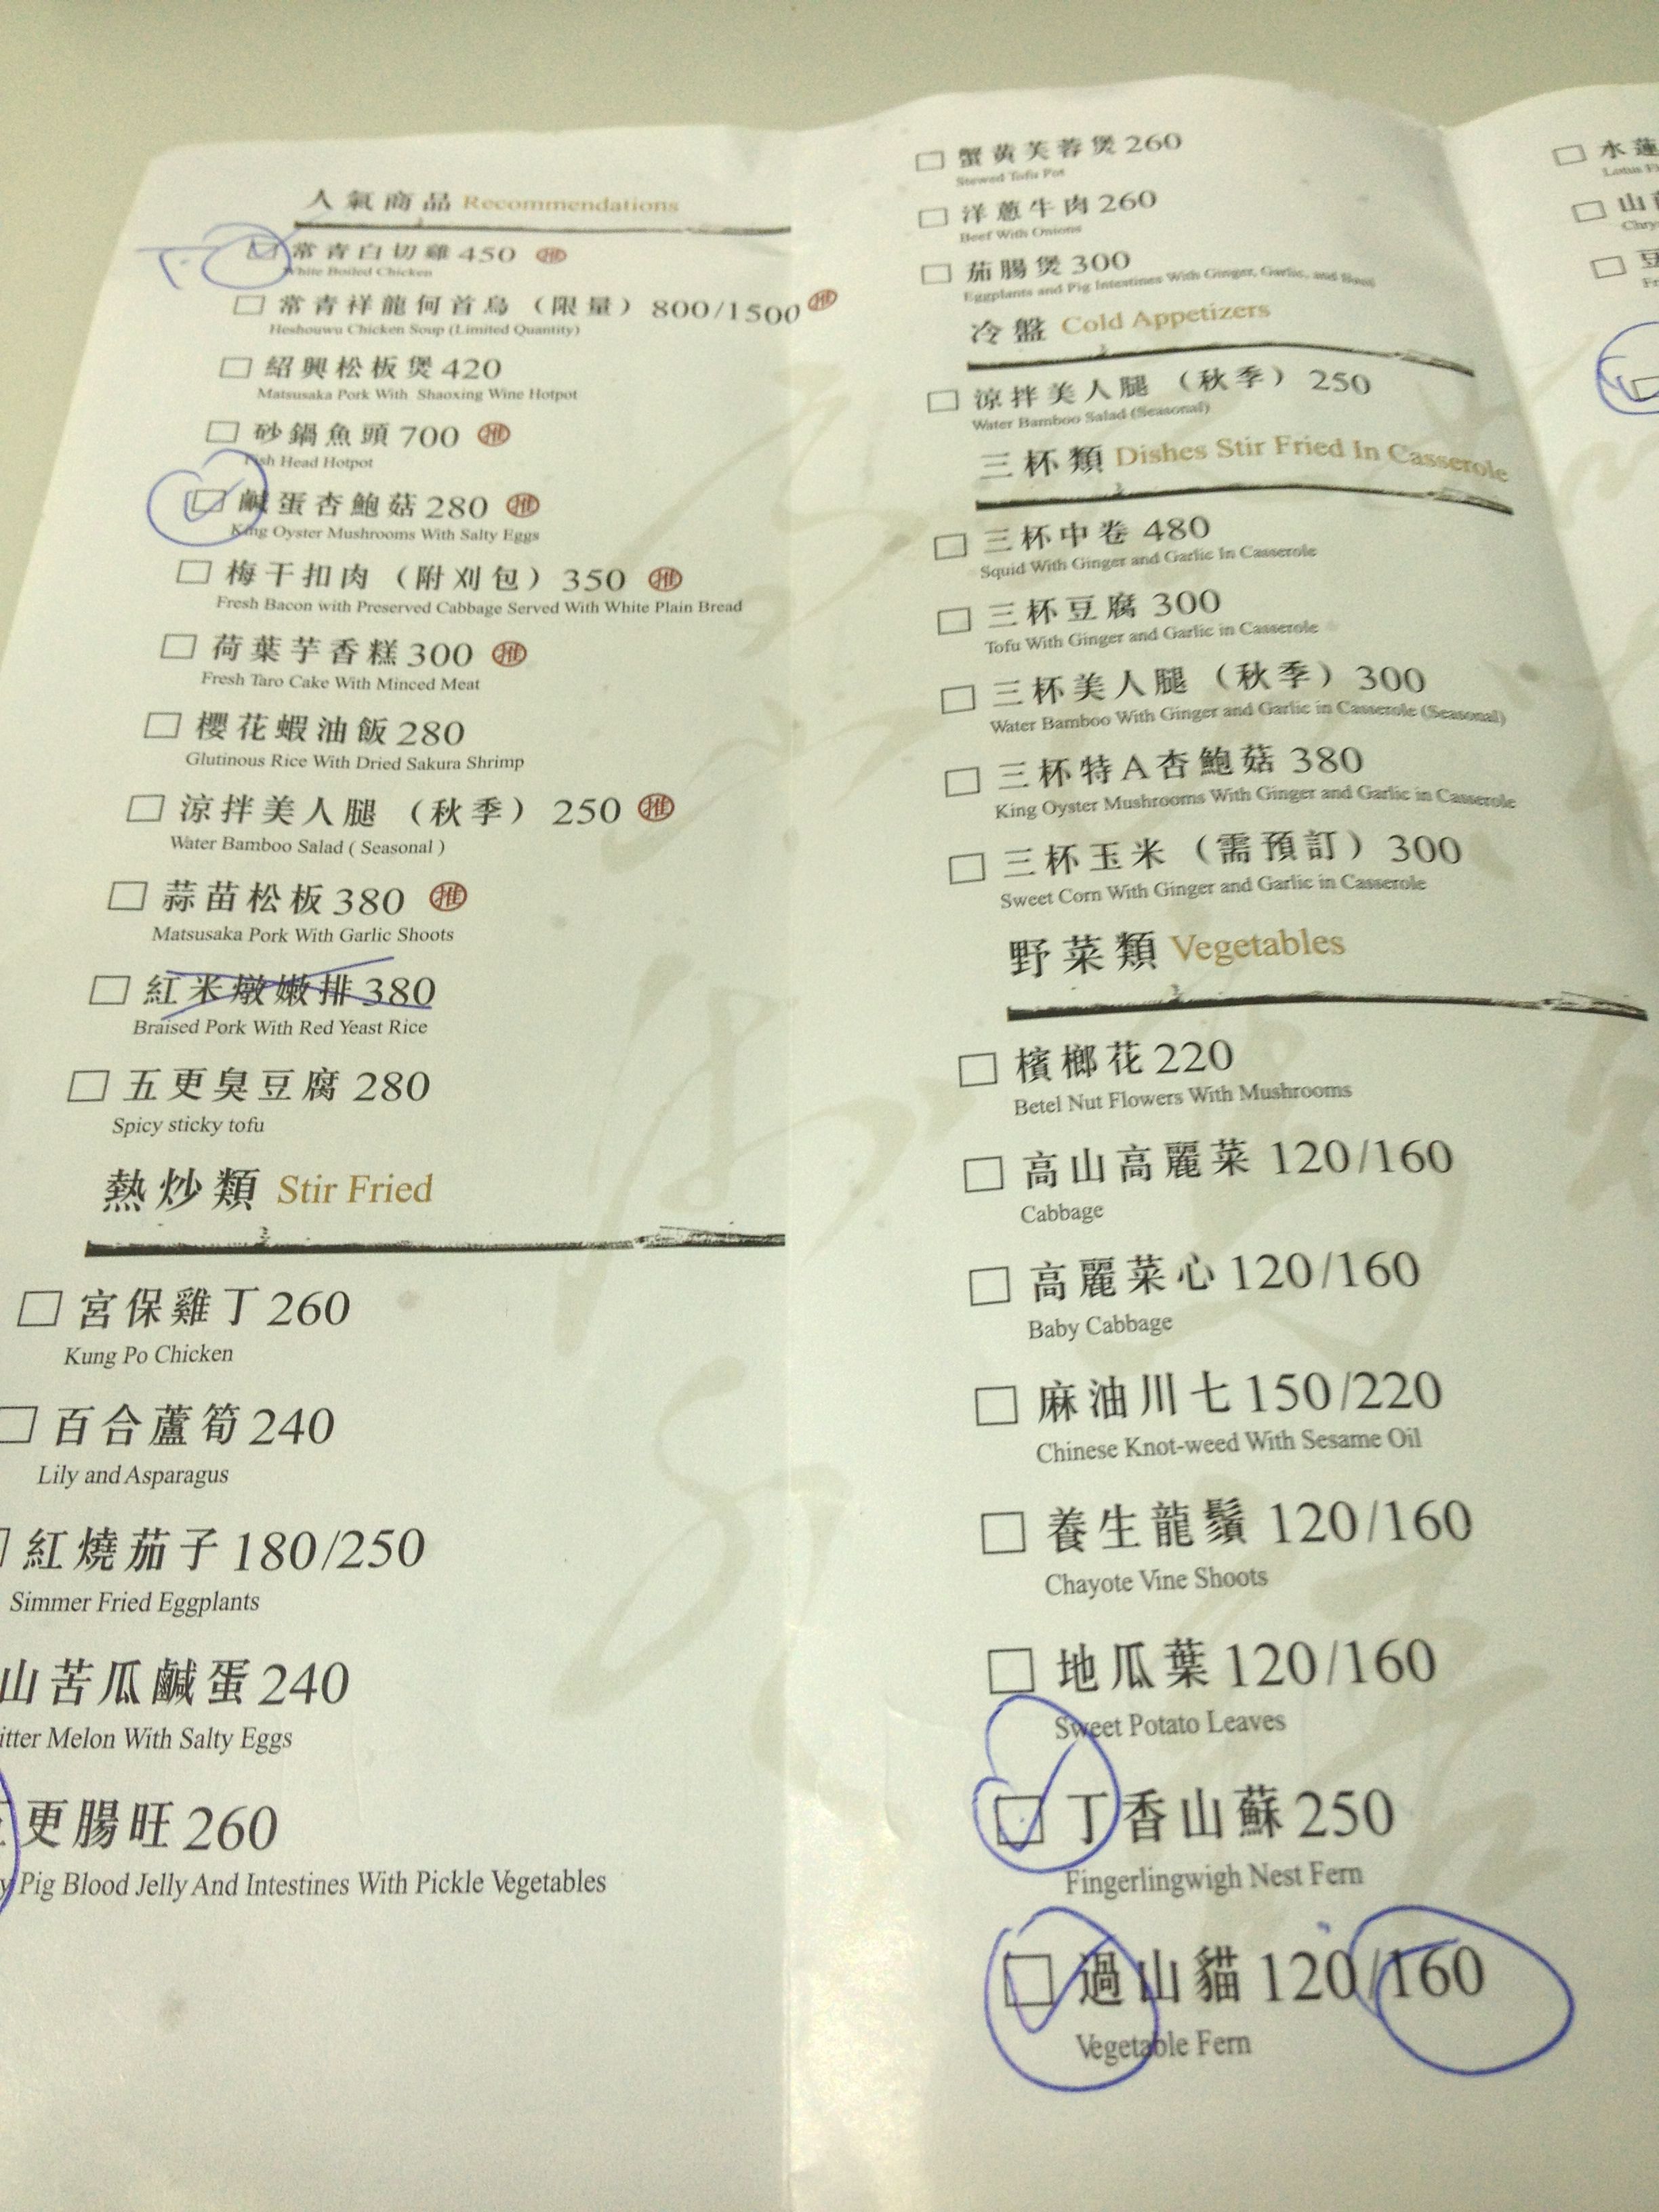 人氣商品 Recommendations
常青白切雞 450 推
White Boiled Chicken
常青祥龍何首烏（限量）800/1500 推
Heshouwu Chicken Soup (Limited Quantity)
紹興松板煲 420
Matsusaka Pork With Shaoxing Wine Hotpot
砂鍋魚頭 700 推
Fish Head Hotpot
鹹蛋杏鮑菇 280 推
King Oyster Mushrooms With Salty Eggs
梅干扣肉（附刈包）350 推
Fresh Bacon with Preserved Cabbage Served With White Plain Bread
荷葉芋香糕 300 推
Fresh Taro Cake With Minced Meat
櫻花蝦油飯 280
Glutinous Rice With Dried Sakura Shrimp
涼拌美人腿（秋季）250 推
Water Bamboo Salad ( Seasonal )
蒜苗松板 380 推
Matsusaka Pork With Garlic Shoots
紅米燉嫩排 380
Braised Pork With Red Yeast Rice
五更臭豆腐 280
Spicy sticky tofu
熱炒類 Stir Fried
宮保雞丁 260
Kung Po Chicken
百合蘆筍 240
Lily and Asparagus
紅燒茄子 180/250
Simmer Fried Eggplants
山苦瓜鹹蛋 240
itter Melon With Salty Eggs
更腸旺 260
y Pig Blood Jelly And Intestines With Pickle Vegetables
蟹黃芙蓉煲 260
Stewed Tofu Pot
洋蔥牛肉 260
Beef With Onions
茄腸煲 300
Eggplants and Pig Intestines With Ginger, Garlic, and Basil
冷盤 Cold Appetizers
涼拌美人腿（秋季）250
Water Bamboo Salad (Seasonal)
三杯類 Dishes Stir Fried In Casserole
三杯中卷 480
Squid With Ginger and Garlic In Casserole
三杯豆腐 300
Tofu With Ginger and Garlic in Casserole
三杯美人腿（秋季）300
Water Bamboo With Ginger and Garlic in Casserole (Seasonal)
三杯特A杏鮑菇 380
King Oyster Mushrooms With Ginger and Garlic in Casserole
三杯玉米（需預訂）300
Sweet Corn With Ginger and Garlic in Casserole
野菜類 Vegetables
檳榔花 220
Betel Nut Flowers With Mushrooms
高山高麗菜 120/160
Cabbage
高麗菜心 120/160
Baby Cabbage
麻油川七 150/220
Chinese Knot-weed With Sesame Oil
養生龍鬚 120/160
Chayote Vine Shoots
地瓜葉 120/160
Sweet Potato Leaves
丁香山蘇 250
Fingerlingwigh Nest Fern
過山貓 120/160
Vegetable Fern
水蓮
山
豆